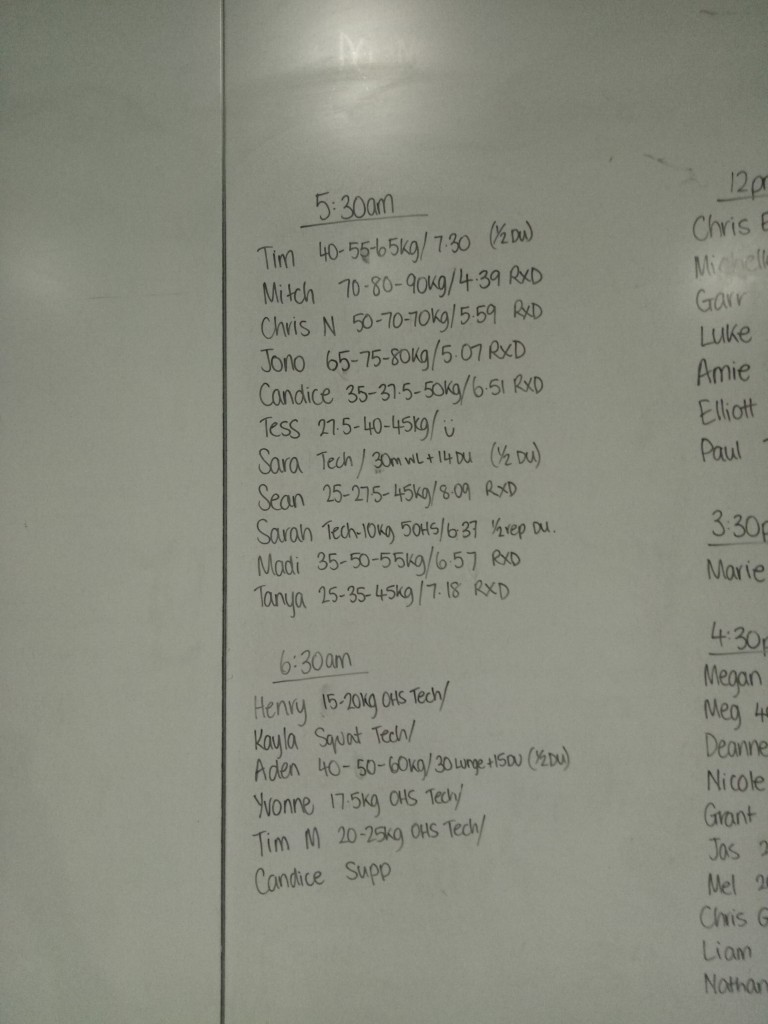 5:30am
Tim 40-55-65kg/7.30 (½ DU)
Mitch 70-80-90kg/4.39 RXD
Chris N 50-70-70kg/5.59 RXD
Jono 65-75-80kg/5.07 RXD
Candice 35-37.5-50kg/6.51 RXD
Tess 27.5-40-45kg/ ü
Sara Tech/30m WL+14 DU (½ DU)
Sean 25-27.5-45kg/8.09 RXD
Sarah Tech-10kg 50HS/6.37 ½ rep DU.
Madi 35-50-55kg/6.57 RXD
Tanya 25-35-45kg/7.18 RXD
6:30am
Henry 15-20kg OHS Tech/
Kayla Squat Tech/
Aden 40-50-60kg/30 Lunge+15DU (½ DU)
Yvonne 17.5kg OHS Tech/
Tim M 20-25kg OHS Tech/
Candice Supp
12p
Chris E
Michell
Garr
Luke
Amie
Elliott
Paul
3:30p
Marie
4:30p
Megan
Meg 4
Deanne
Nicole
Grant
Jas 2
Mel 2
Chris G
Liam
Nathan